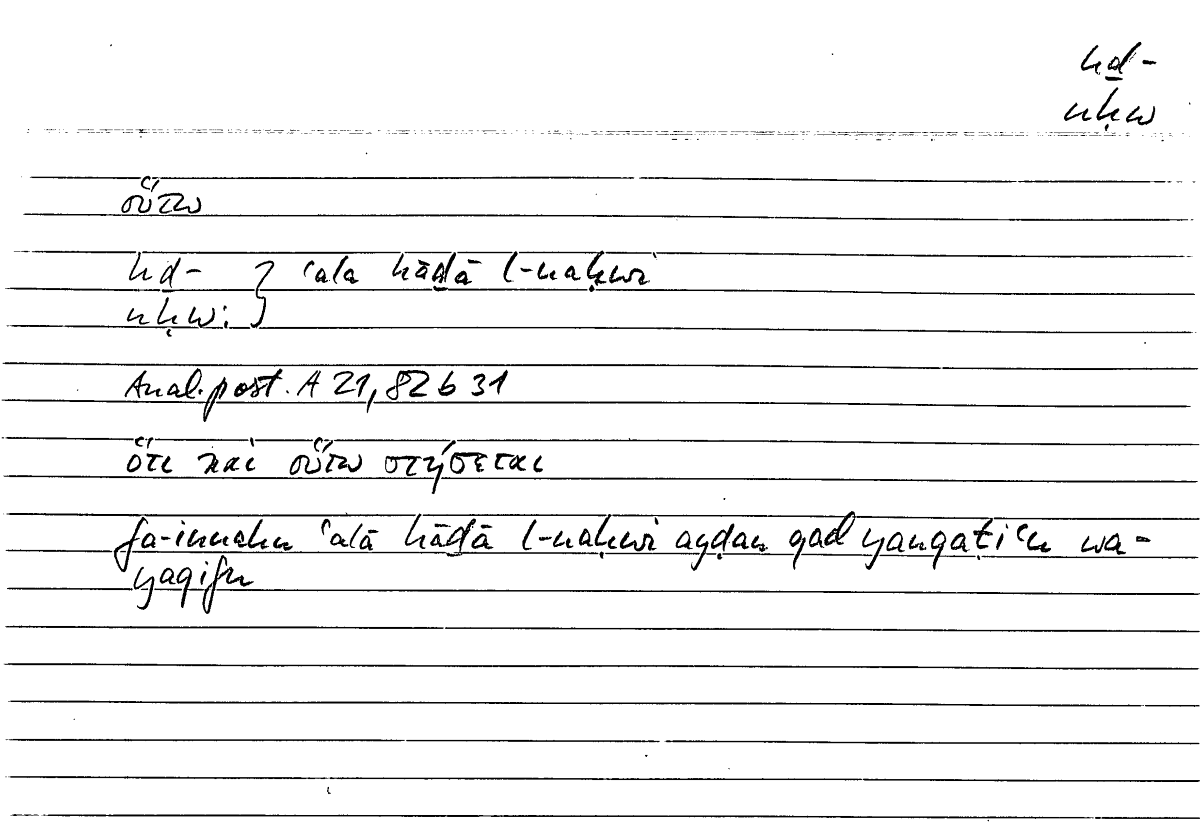 hḏ-
nḥw
οὕτω
hḏ- } ʿala hāḏā l-naḥwi
nḥw:
Anal. post. A 21, 82 b 31
ὅτι καὶ οὕτω στήσεται
fa-innahu ʿalā hāḏā l-naḥwi ayḍan qad yanqaṭiʿu wa-
yaqifu